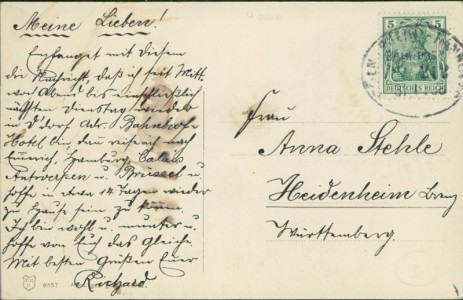 Meine Lieben!
Empfanget mit diesem
die Nachricht, daß ich seit Mitt-
woch Abend bis einschließlich
nächsten Dienstag wieder
in D'dorf Adr. Bahnhofs
Hotel bin, dann reise ich nach
Emmerich, Hamburg, Calais
Antwerpen u. Brüssel u.
hoffe in etwa 14 Tagen wieder
zu Hause sein zu können.
Ich bin wohl u. munter u.
hoffe von Euch das Gleiche.
Mit besten Grüßen Euer
Richard.
Frau
Anna Stehle
Heidenheim Brenz
Württemberg.
5 5
DEUTSCHES REICH
9157